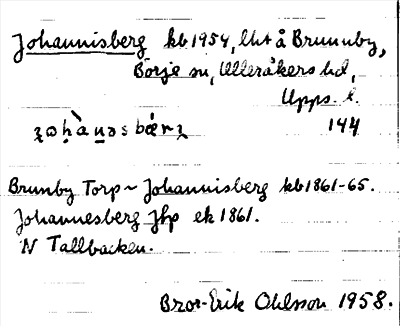 Johannisberg kb 1954, lht å Brunnby,
Börje sn, Ulleråkers hd,
Upps. l.
144
Brunby Torp ~ Johannisberg kb 1861-65.
Johannesberg Jhp ek 1861.
N Tallbacken.
Bror-Erik Ohlsson 1958.